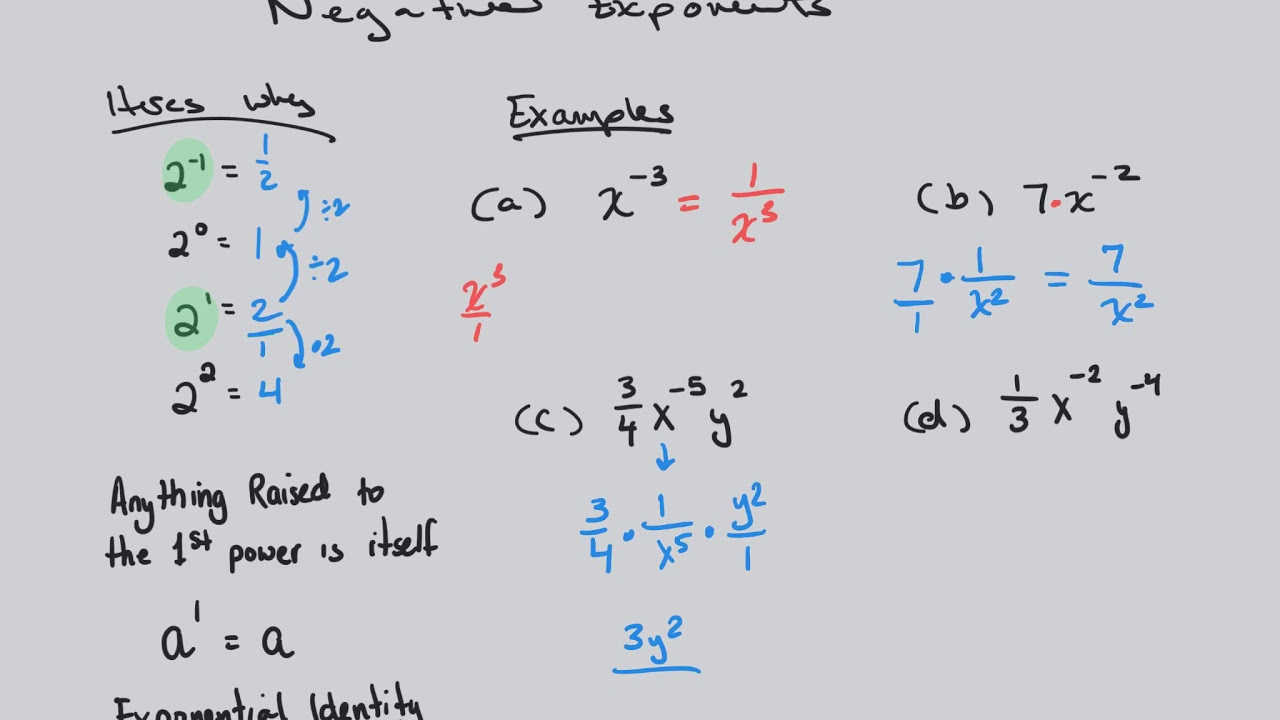 Negative Exponents
Heres why
2⁻¹ = 1/2
÷2
2⁰ = 1
÷2
2¹ = 2/1
·2
2² = 4
Anything Raised to
the 1st power is itself
a¹ = a
Exponential Identity
Examples
(a) x⁻³ = 1/x³
x³/1
(b) 7·x⁻²
7/1 · 1/x² = 7/x²
(c) 3/4 x⁻⁵ y²
↓
3/4 · 1/x⁵ · y²/1
3y²
(d) 1/3 x⁻² y⁻⁴